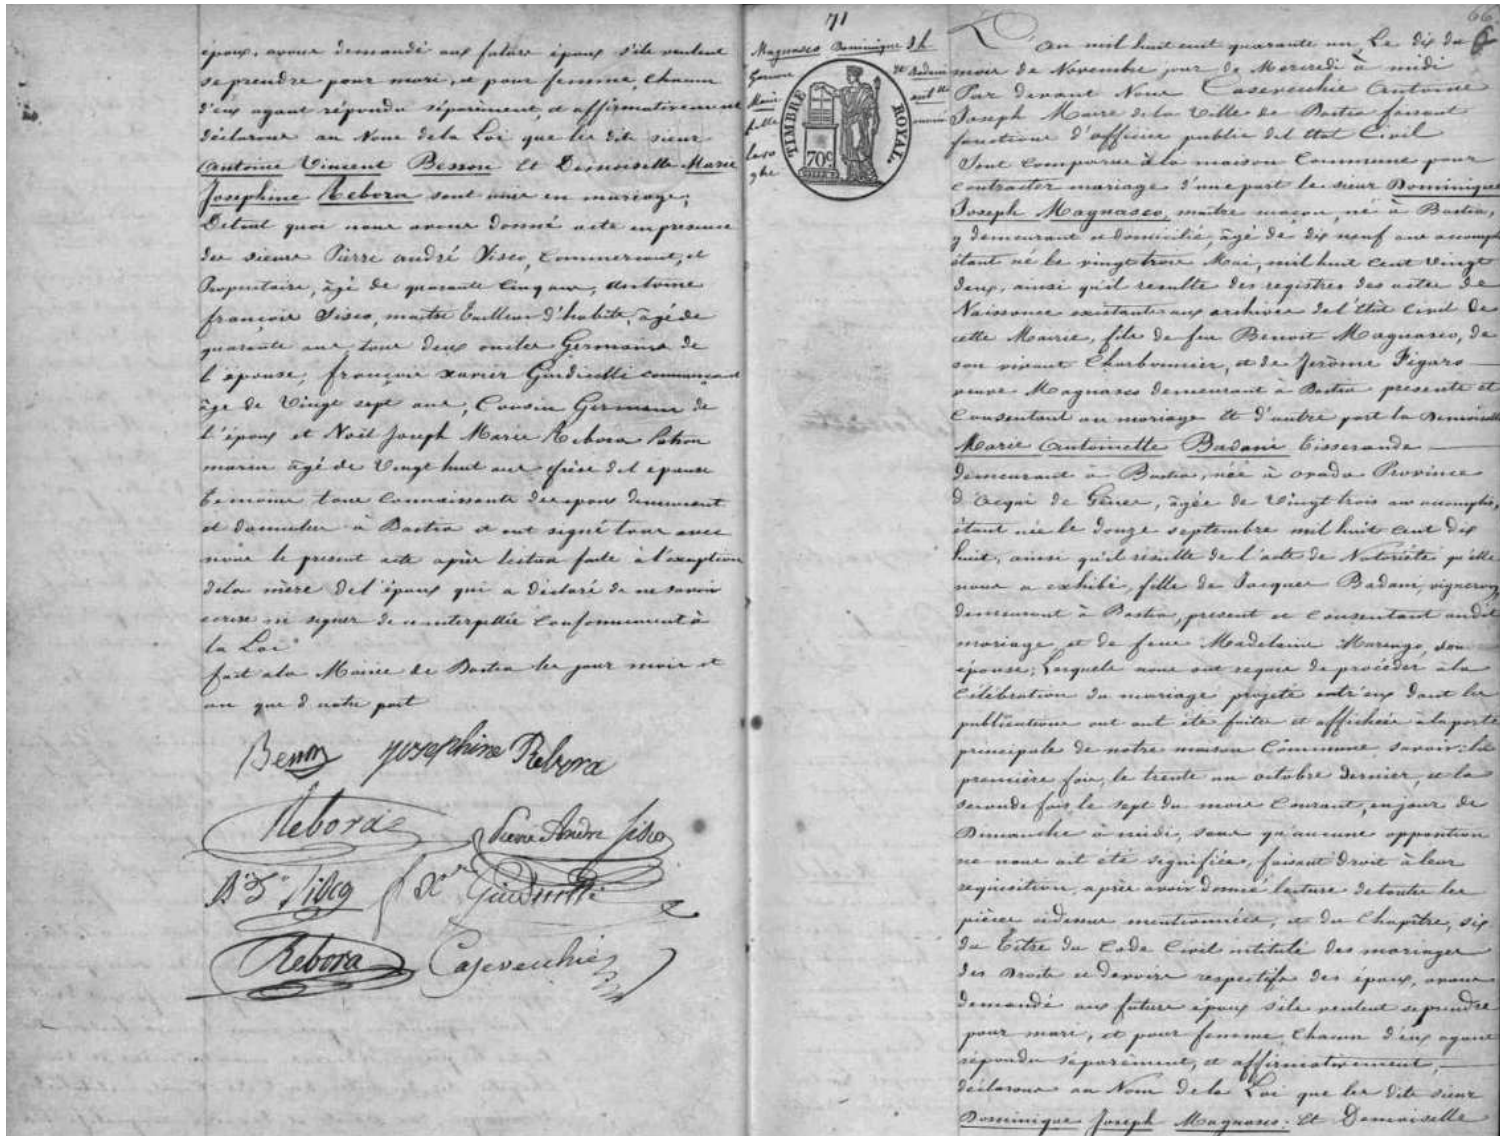 époux, avons demandé aux futurs époux s'ils veulent
se prendre pour mari, et pour femme, chacun
d'eux ayant répondu séparément, et affirmativement
déclarons au Nom de la Loi que les dits sieur
Antoine Vincent Besson Et Demoiselle Marie
Josephine Rebora sont unis en mariage;
De tout quoi nous avons donné acte en présence
des sieurs Pierre André Sisco, Commerçant, et
Propriétaire, âgé de quarante cinq ans, Antoine
françois Sisco, maitre tailleur d'habits, âgé de
quarante ans tous deux oncles Germains de
l'épouse, françois xavier Giudicelli commerçant
âgé de Vingt sept ans, Cousin Germain de
l'époux et Noël Joseph Marie Rebora Patron
marin âgé de Vingt huit ans frère del epouse
temoins tous Connaissants des epoux demeurant
et domiciliés à Bastia et ont signé tous avec
nous le present acte après lecture faite à l'exception
dela mère del'époux qui a déclaré de ne savoir
ecrire ni signer de ce interpellée Conformement à
la Loi
fait a la Mairie de Bastia les jour mois et
an que d'autre part
Besson Josephine Rebora
Rebora Pierre André Sisco
Sisco Xer Giudicelli
Rebora Casevecchie
71
Magnasco Dominique Jh
et Badani
Marie
TIMBRE ROYAL.
70c
66
L'an mil huit cent quarante un, Le dix du
mois de Novembre jour de Mercredi à midi
Par devant Nous Casevecchie Antoine
Joseph Maire de la Ville de Bastia faisant
fonctions d'officier public del Etat Civil
Sont Comparus à la maison Commune pour
contracter mariage d'une part le sieur Dominique
Joseph Magnasco, maitre maçon, né à Bastia,
y demeurant et domicilié, âgé de dix neuf ans accomplis
étant né le vingt trois Mai, mil huit cent vingt
deux, ainsi qu'il résulte des registres des actes de
Naissance existants aux archives de l'état Civil de
cette Mairie, fils de feu Benoit Magnasco, de
son vivant Charbonnier, et de Jerôme Figaro
veuve Magnasco demeurant à Bastia présente et
Consentant au mariage Et d'autre part la Demoiselle
Marie Antoinette Badani tisserande
demeurant à Bastia, née à ovada Province
d'Acqui de Gênes, âgée de Vingt trois ans accomplis,
étant née le douze septembre mil huit cent dix
huit, ainsi qu'il résulte de l'acte de Notoriété qu'elle
nous a exhibé, fille de Jacques Badani, vigneron,
demeurant à Bastia, présent et Consentant audit
mariage et de feue Madelaine Marengo, son
épouse; Lesquels nous ont requis de procéder à la
Célébration du mariage projeté entr'eux dont les
publications ont été faites et affichées à la porte
principale de notre maison Commune savoir: la
première fois, le trente un octobre dernier, et la
seconde fois le sept du mois Courant, en jour de
Dimanche à midi, sans qu'aucune opposition
ne nous ait été signifiée, faisant droit à leur
réquisition, après avoir donné lecture de toutes les
pièces ci-dessus mentionnées, et du Chapitre, six
du Titre du Code Civil intitulé des mariages
des Droits et devoirs respectifs des époux, avons
demandé aux futurs époux s'ils veulent se prendre
pour mari, et pour femme, Chacun d'eux ayant
répondu séparément, et affirmativement,
déclarons au Nom de la Loi que les dits sieur
Dominique Joseph Magnasco, Et Demoiselle